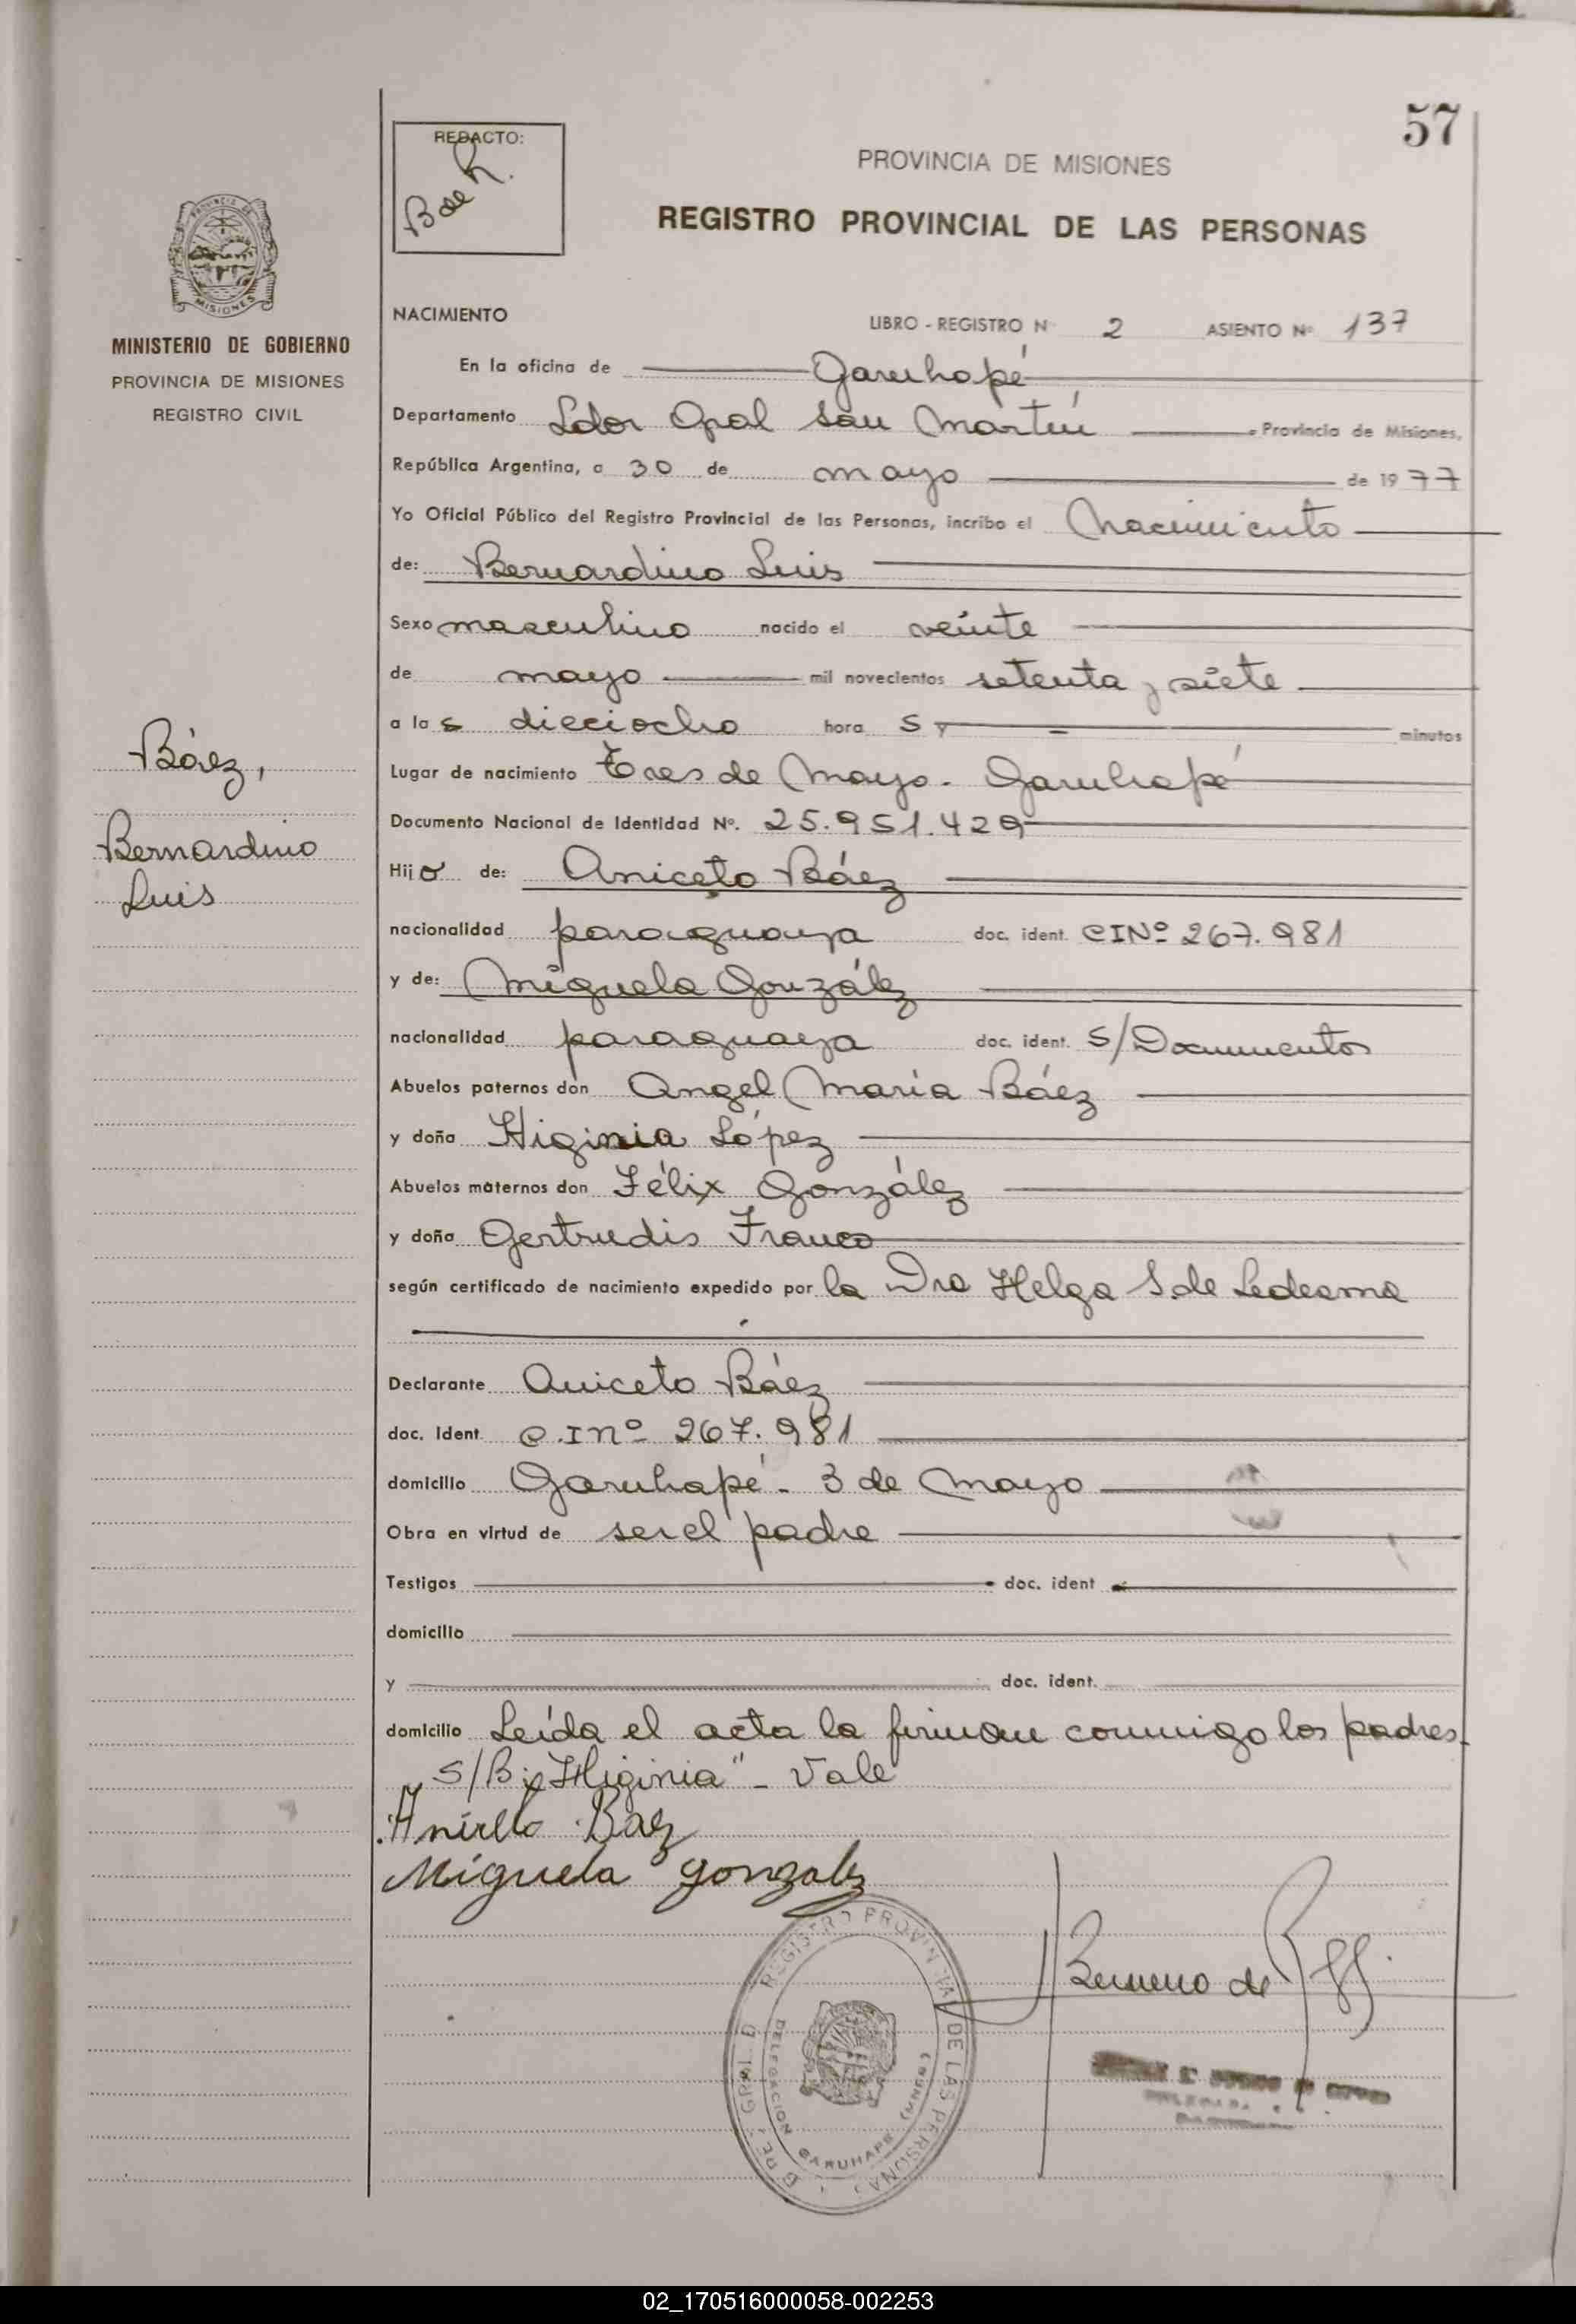 57
REDACTO:
PROVINCIA DE MISIONES
REGISTRO PROVINCIAL DE LAS PERSONAS
MISIONES
MINISTERIO DE GOBIERNO
PROVINCIA DE MISIONES
REGISTRO CIVIL
NACIMIENTO
LIBRO - REGISTRO Nº 2 ASIENTO Nº 137
En la oficina de Garuhapé
Departamento Ldor Gral San Martín Provincia de Misiones,
República Argentina, a 30 de mayo de 1977
Yo Oficial Público del Registro Provincial de las Personas, incribo el Nacimiento
de: Bernardino Luis
Sexo masculino nacido el veinte
de mayo mil novecientos setenta y siete
a las dieciocho horas y — minutos
Lugar de nacimiento Tres de Mayo - Garuhapé
Báez,
Bernardino
Luis
Documento Nacional de Identidad Nº. 25.951.429
Hijo de: Aniceto Báez
nacionalidad paraguaya doc. ident. CINº 267.981
y de: Miguela González
nacionalidad paraguaya doc. ident. S/Documentos
Abuelos paternos don Angel María Báez
y doña Higinia López
Abuelos maternos don Félix González
y doña Gertrudis Franco
según certificado de nacimiento expedido por la Dra Helga S. de Ledesma
Declarante Aniceto Báez
doc. Ident. C.I nº 267.981
domicilio Garuhapé - 3 de Mayo
Obra en virtud de ser el padre
Testigos doc. ident
domicilio
y doc. ident.
domicilio Leída el acta la firman conmigo los padres.
S/B: "Higinia" - Vale
Báez
Miguela Gonzalez
REGISTRO PROVINCIAL DE LAS PERSONAS
DELEGACION GARUHAPE
02_170516000058-002253